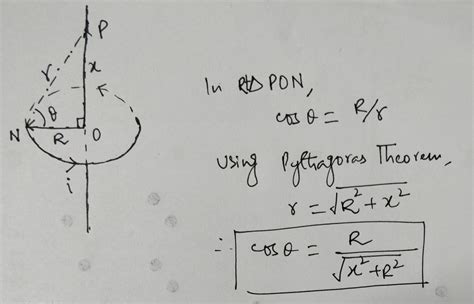 P
r
x
θ
N
R
O
i
In Rt Δ PON,
cos θ = R/r
Using Pythagoras Theorem,
r = √R² + x²
∴ cos θ = R / √x² + R²